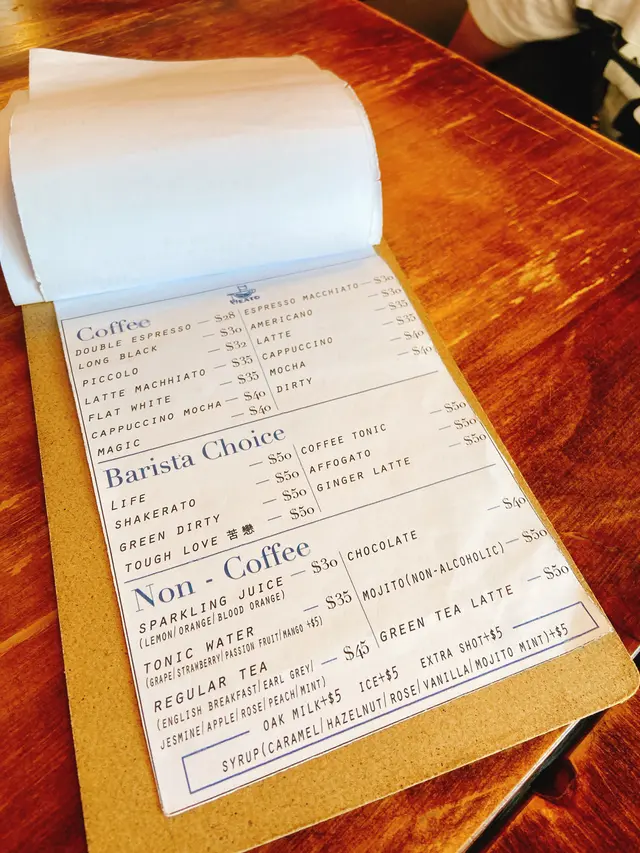 Coffee
DOUBLE ESPRESSO — $28
LONG BLACK — $30
PICCOLO — $32
LATTE MACHHIATO — $35
FLAT WHITE — $35
CAPPUCCINO MOCHA — $40
MAGIC — $40
ESPRESSO MACCHIATO — $30
AMERICANO — $30
LATTE — $35
CAPPUCCINO — $35
MOCHA — $40
DIRTY — $40
Barista Choice
LIFE — $50
SHAKERATO — $50
GREEN DIRTY — $50
TOUGH LOVE 苦戀 — $50
COFFEE TONIC — $50
AFFOGATO — $50
GINGER LATTE — $50
Non - Coffee
SPARKLING JUICE — $30
(LEMON/ORANGE/BLOOD ORANGE)
TONIC WATER — $35
(GRAPE/STRAWBERRY/PASSION FRUIT/MANGO +$5)
REGULAR TEA — $45
(ENGLISH BREAKFAST/EARL GREY/
JESMINE/APPLE/ROSE/PEACH/MINT)
CHOCOLATE — $40
MOJITO(NON-ALCOHOLIC) — $50
GREEN TEA LATTE — $50
OAK MILK+$5 ICE+$5 EXTRA SHOT+$5
SYRUP(CARAMEL/HAZELNUT/ROSE/VANILLA/MOJITO MINT)+$5